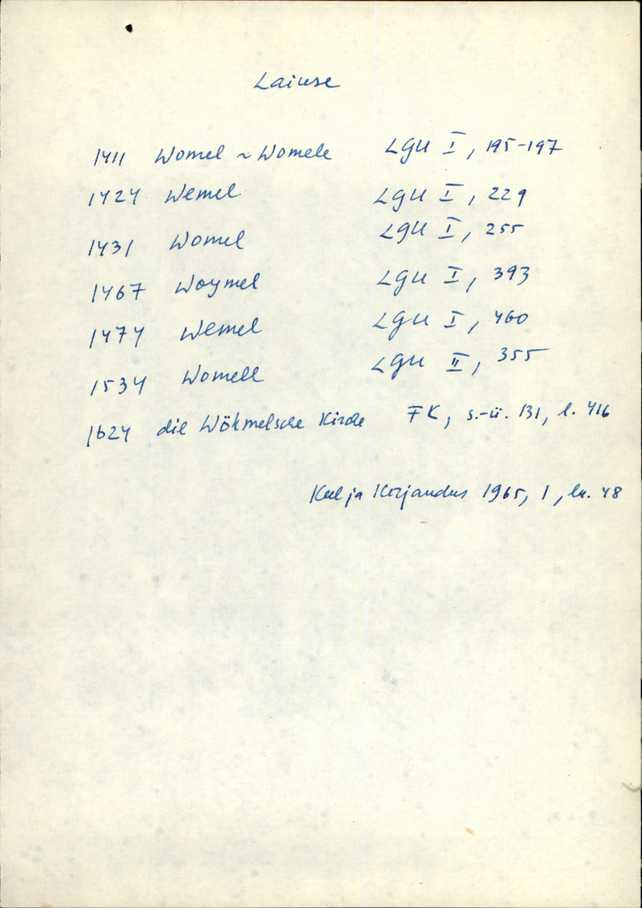 Laiuse
1411 Womel ~ Womele LGU I, 195-197
1424 Wemel LGU I, 229
1431 Womel LGU I, 255
1467 Woymel LGU I, 393
1474 Wemel LGU I, 460
1534 Womell LGU II, 355
1624 die Wöhmelsche Kirche FK, s.-ü. 131, l. 416
Keel ja Kirjandus 1965, 1, lk. 48